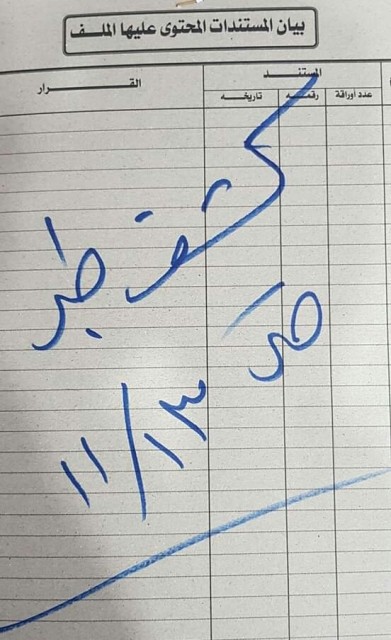 بيان المستندات المحتوى عليها الملف
المستند
القرار
عدد أوراقه رقمه تاريخه
كشف طبى
١١/١٣